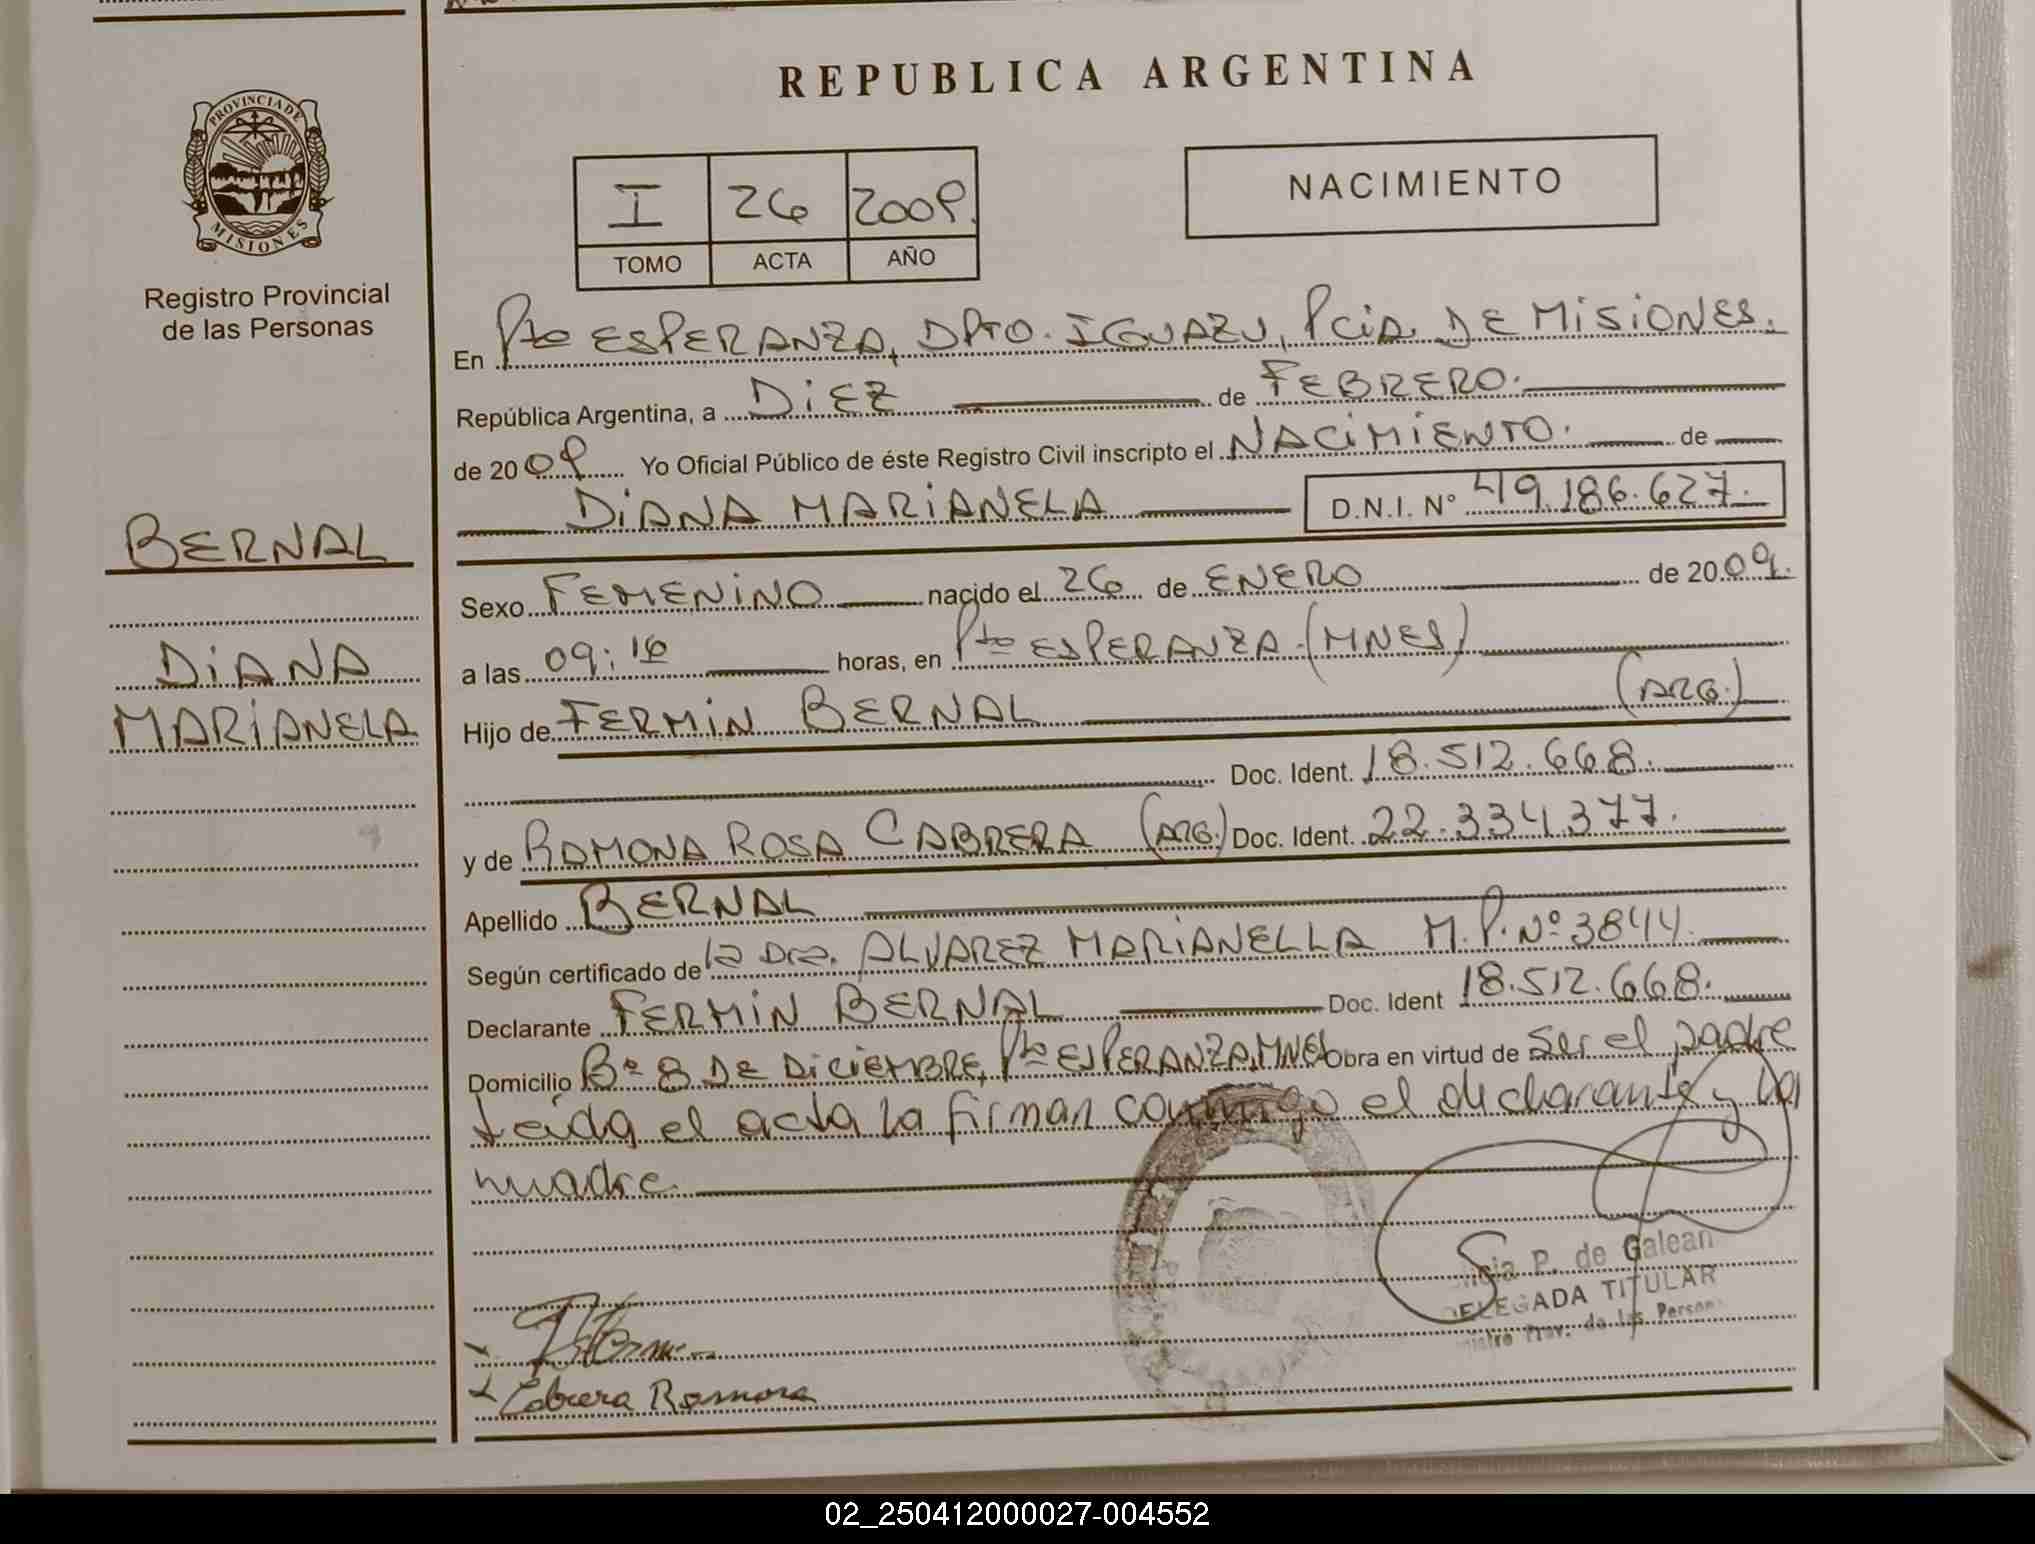 REPUBLICA ARGENTINA
PROVINCIA DE
MISIONES
Registro Provincial
de las Personas
I 26 2009.
TOMO ACTA AÑO
NACIMIENTO
BERNAL
DIANA
MARIANELA
En Pto ESPERANZA, DPTO. IGUAZU, PCIA. DE MISIONES.
República Argentina, a DIEZ de FEBRERO.
de 2009 Yo Oficial Público de éste Registro Civil inscripto el NACIMIENTO. de
DIANA MARIANELA D.N.I. N° 49.186.627.
Sexo FEMENINO nacido el 26 de ENERO de 2009.
a las 09:16 horas, en Pto ESPERANZA.(MNES)
Hijo de FERMIN BERNAL (ARG.)
Doc. Ident. 18.512.668.
y de RAMONA ROSA CABRERA (ARG.) Doc. Ident. 22.334.377.
Apellido BERNAL
Según certificado de la Dra. ALVAREZ MARIANELLA M.P. Nº 3844.
Declarante FERMIN BERNAL Doc. Ident 18.512.668.
Domicilio Bº 8 DE DICIEMBRE, Pto ESPERANZA, MNES Obra en virtud de ser el padre
Leida el acta la firman conmigo el declarante y la
madre.
P. de Galean
DELEGADA TITULAR
Prov. de las Person
Cabrera Ramona
02_250412000027-004552